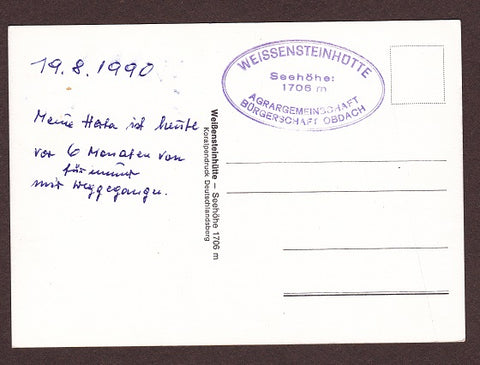 19.8.1990
Meine Herta ist heute
vor 6 Monaten von
für immer
mir weggegangen.
WEISSENSTEINHÜTTE
Seehöhe:
1706 m
AGRARGEMEINSCHAFT
BÜRGERSCHAFT OBDACH
Weißensteinhütte – Seehöhe 1706 m
Koralpendruck Deutschlandsberg